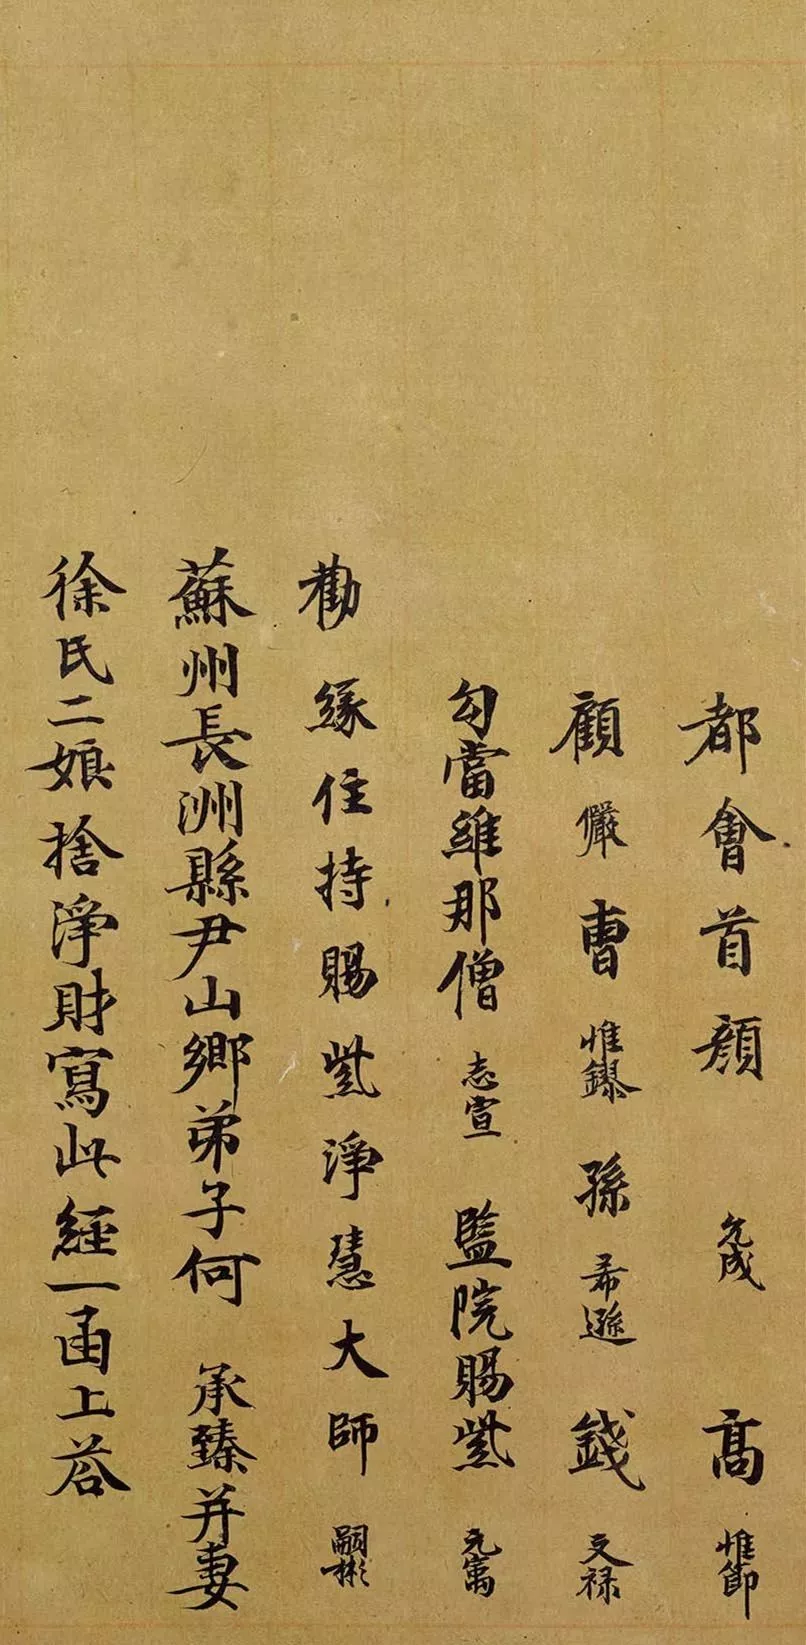 都會首顏 允成 高 惟節
顧 儼 曹 惟鐸 孫 希遜 錢 文禄
勾當維那僧 志宣 監院賜紫 元萬
勸緣住持賜紫淨慧大師 嗣彬
蘇州長洲縣尹山鄉弟子何 承臻并妻
徐氏二娘捨淨財寫此經一函上荅